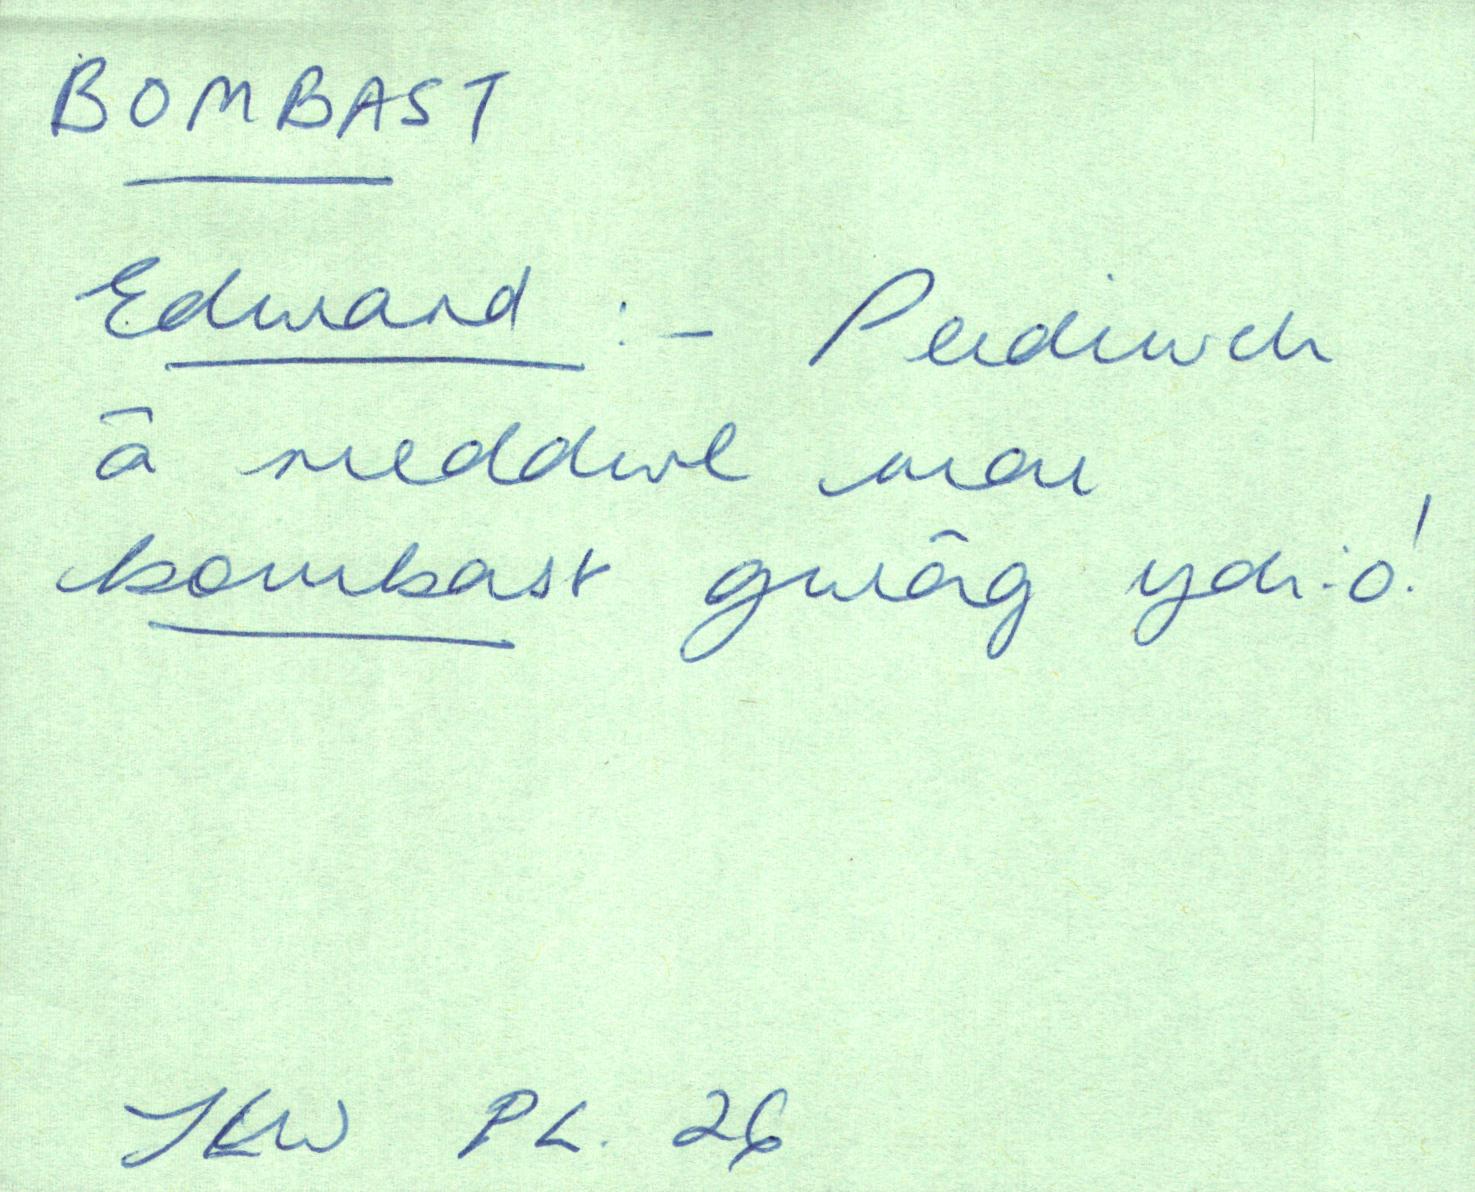 BOMBAST
Edward :- Peidiwch
â meddwl mai
bombast gwâg ydi-o!
JLW PL. 26